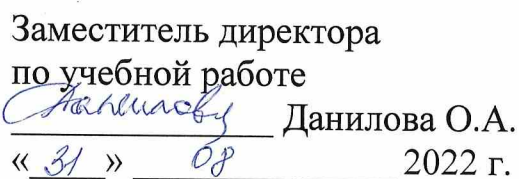 Заместитель директора
по учебной работе
Данилова О.А.
«31» 08 2022 г.